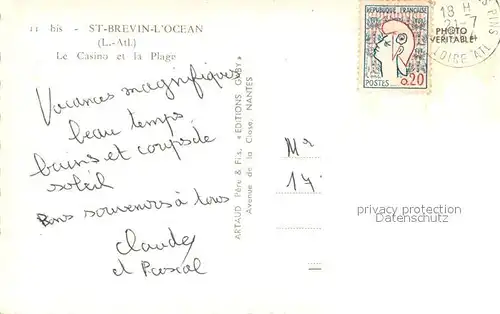 11 bis - ST-BREVIN-L'OCEAN
(L.-Atl.)
Le Casino et la Plage
Vacances magnifiques
beau temps
bains et coups de
soleil
Bons souvenirs à tous
Claude
et Pascal
ARTAUD Père & Fils, « EDITIONS GABY »
Avenue de la Close, NANTES
REPUBLIQUE FRANÇAISE
POSTES 0.20
18 H
21-7
PHOTO
VERITABLE
LOIRE ATL
PINS
Mr
17
privacy protection
Datenschutz